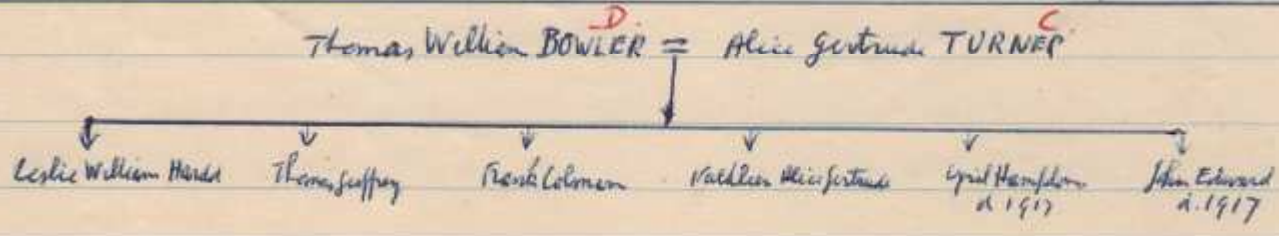 D. C
Thomas William BOWLER = Alice Gertrude TURNER
Leslie William Harold Thomas Geoffrey Frank Colman Kathleen Alice Gertrude Cyril Hampden John Edward
d 1917 d. 1917